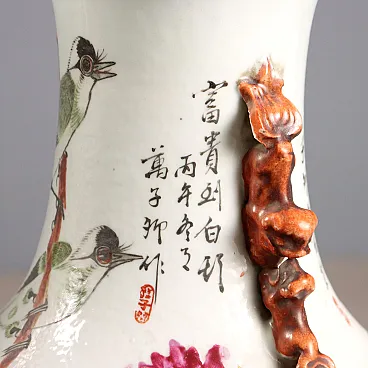 富貴到白頭
丙午冬月
萬子卿作